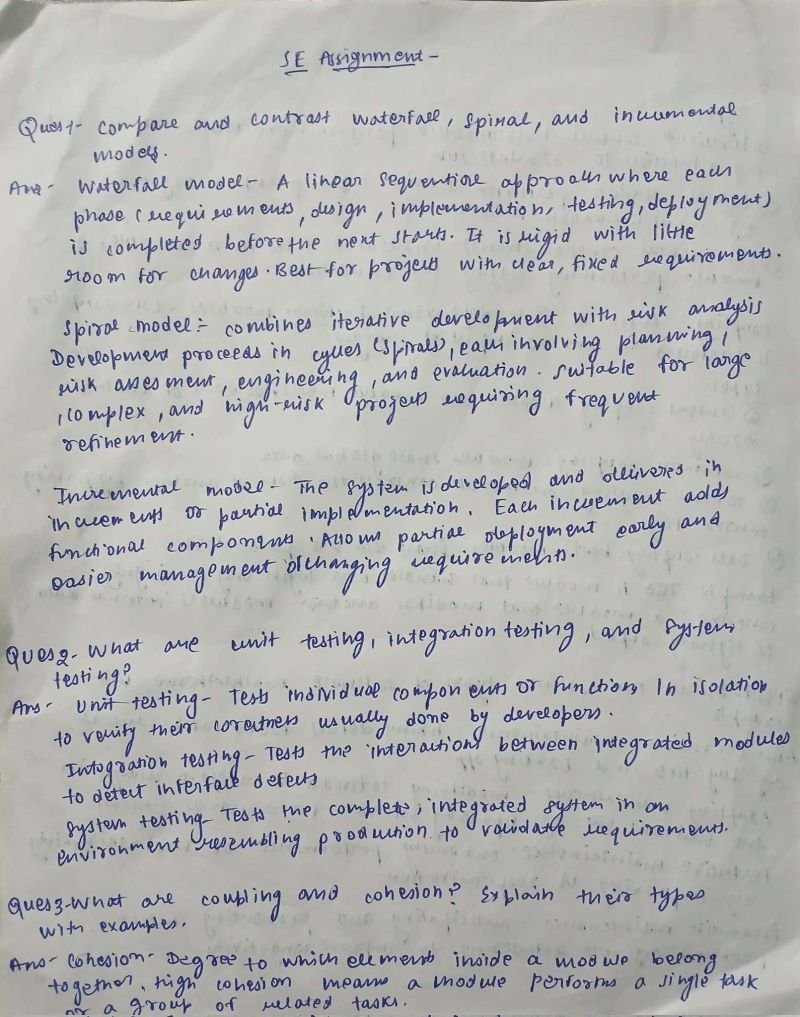 SE Assignment -
Ques1- Compare and contrast waterfall, spiral, and incremental
models.
Ans - Waterfall model - A linear sequential approach where each
phase (requirements, design, implementation, testing, deployment)
is completed before the next starts. It is rigid with little
room for changes. Best for projects with clear, fixed requirements.
Spiral model :- combines iterative development with risk analysis
Development proceeds in cycles (spirals), each involving planning,
risk assesment, engineering, and evaluation. Suitable for large
, complex, and high-risk projects requiring frequent
refinement.
Incremental model - The system is developed and delivered in
increments or partial implementation. Each increment adds
functional components. Allows partial deployment early and
easier management of changing requirements.
Ques2- What are unit testing, integration testing, and system
testing?
Ans- Unit testing - Tests individual components or functions in isolation
to verify their corectness usually done by developers.
Integration testing - Tests the interactions between integrated modules
to detect interface defects
System testing - Tests the complete, integrated system in an
environment resembling production to validate requirements.
Ques3- What are coupling and cohesion? Explain their types
with examples.
Ans- Cohesion - Degree to which elements inside a module belong
together. high cohesion means a module performs a single task
or a group of related tasks.